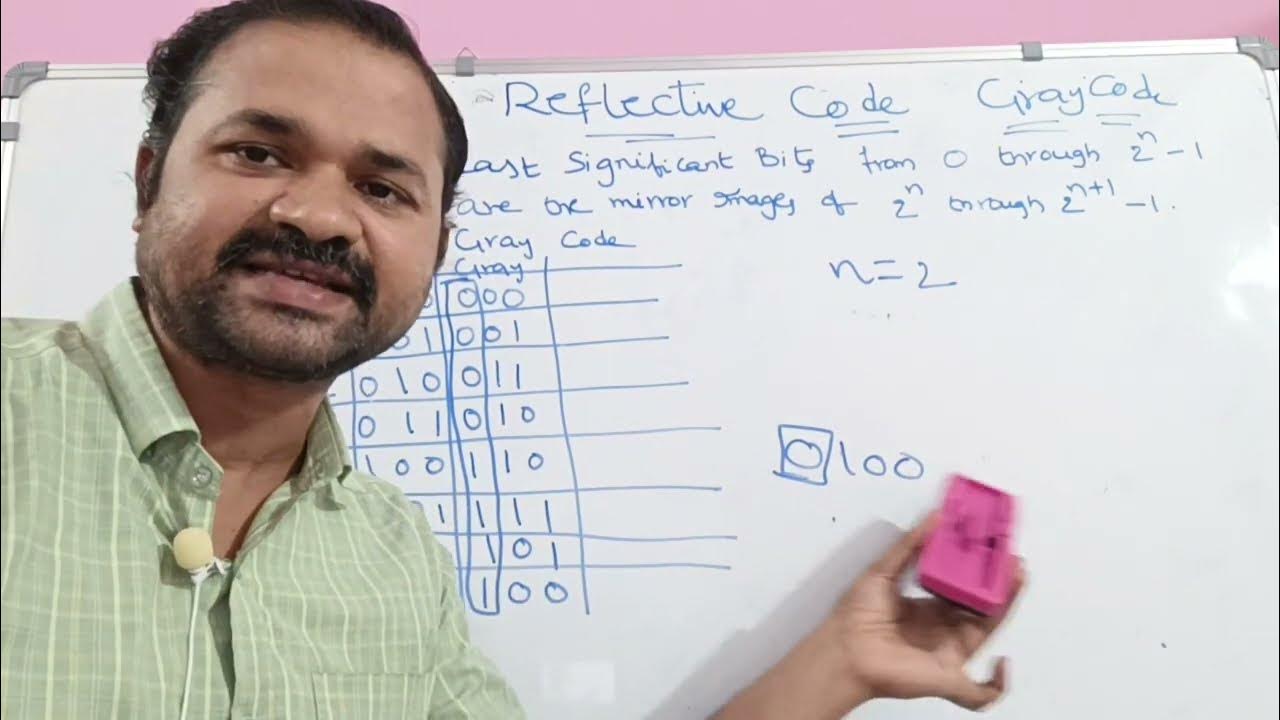 Reflective Code Gray Code
Least Significant Bits from 0 through 2^n - 1
are the mirror Images of 2^n through 2^(n+1) - 1.
Gray Code
Gray
n = 2
0 000
01 001
010 011
011 010
0100
100 110
1 111
101
100